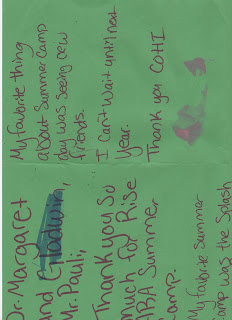 My favorite thing
about Summer Camp
day was seeing new
friends.
I Can't wait until next
year.
Thank you COHI
Dr. Margaret
and
Mr. Pauli,
Thank you So
much for Rise
ABA Summer
Camp.
My favorite summer
camp was the Splash